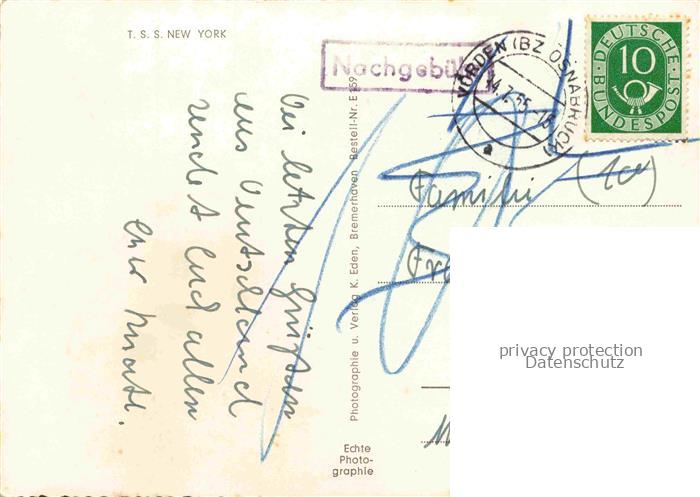 T. S. S. NEW YORK
Nachgebühr
VÖRDEN (BZ OSNABRÜCK)
4.7.55-18
DEUTSCHE BUNDESPOST
10
Die letzten Grüße
aus Deutschland
sendet Euch allen
Eure
Photographie u. Verlag K. Eden, Bremerhaven Bestell-Nr. E 159
Familie
Fr
Echte
Photo-
graphie
privacy protection
Datenschutz